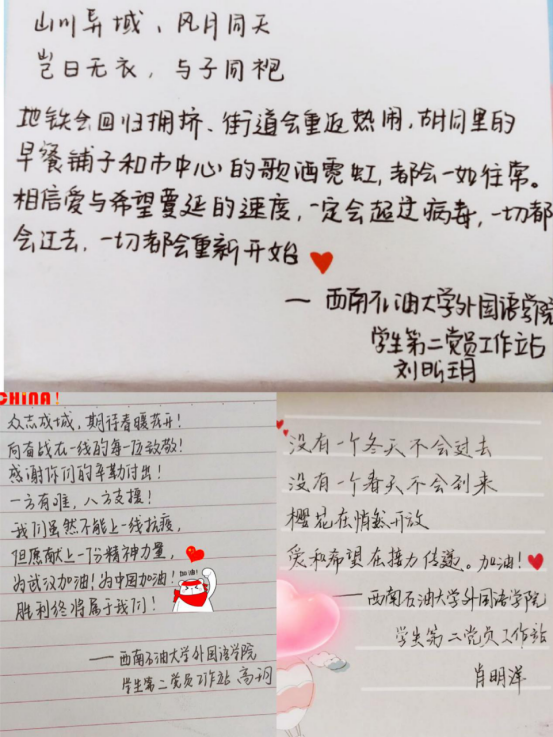 山川异域、风月同天
岂曰无衣，与子同袍
地铁会回归拥挤、街道会重返热闹，胡同里的
早餐铺子和市中心的歌酒霓虹，都会一如往常。
相信爱与希望蔓延的速度，一定会超过病毒，一切都
会过去，一切都会重新开始
— 西南石油大学外国语学院
学生第二党员工作站
刘昕玥
CHINA!
众志成城，期待春暖花开！
向奋战在一线的每一位致敬！
感谢你们的辛勤付出！
一方有难，八方支援！
我们虽然不能上一线抗疫，
但愿献上一份精神力量，
为武汉加油！为中国加油！
加油！
胜利终将属于我们！
——西南石油大学外国语学院
学生第二党员工作站 高
没有一个冬天不会过去
没有一个春天不会到来
樱花在悄然开放
爱和希望在接力传递。加油！
——西南石油大学外国语学院
学生第二党员工作站
肖明洋